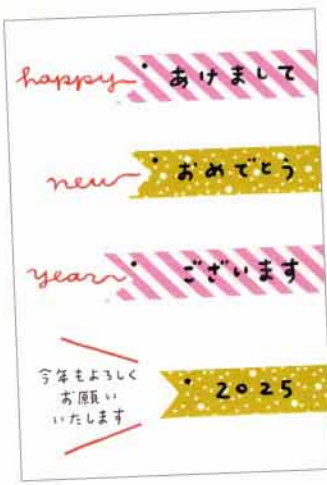 happy あけまして
new おめでとう
year ございます
今年もよろしく
お願い
いたします
2025